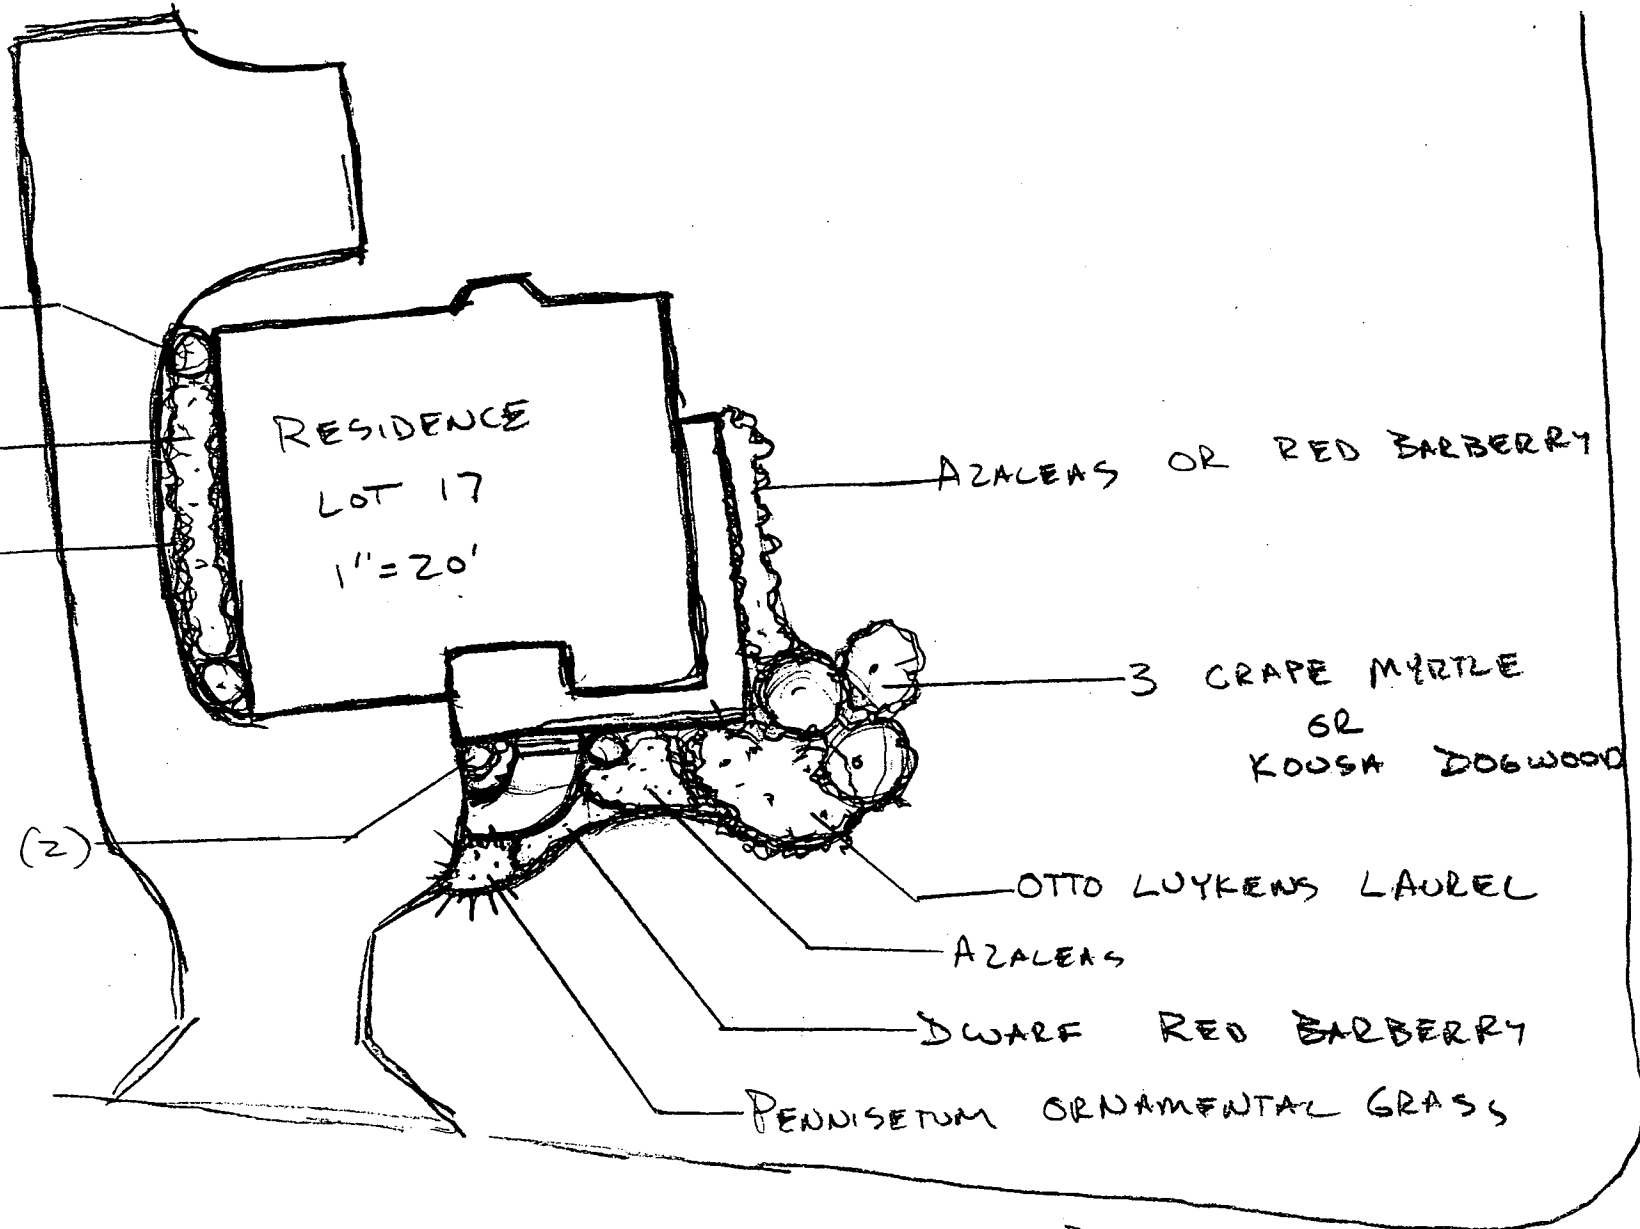 RESIDENCE
LOT 17
1"=20'
AZALEAS OR RED BARBERRY
3 CRAPE MYRTLE
OR
KOUSA DOGWOOD
(2)
OTTO LUYKENS LAUREL
AZALEAS
DWARF RED BARBERRY
PENNISETUM ORNAMENTAL GRASS